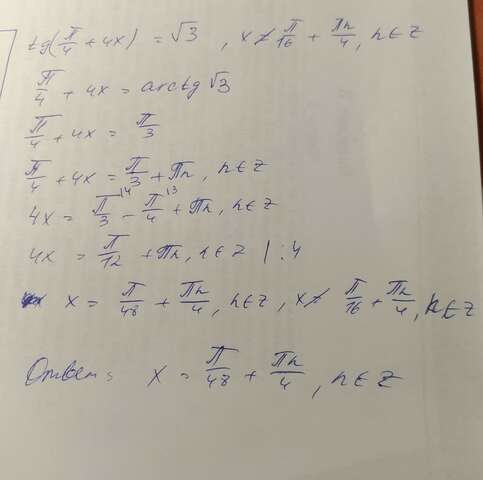 tg(π/4 + 4x) = √3 , x ≠ π/16 + πn/4, n ∈ Z
π/4 + 4x = arctg √3
π/4 + 4x = π/3
π/4 + 4x = π/3 + πn, n ∈ Z
4x = π/3 |4 − π/4 |3 + πn, n ∈ Z
4x = π/12 + πn, n ∈ Z | : 4
x = π/48 + πn/4, n ∈ Z, x ≠ π/16 + πn/4, n ∈ Z
Ответ: x = π/48 + πn/4, n ∈ Z